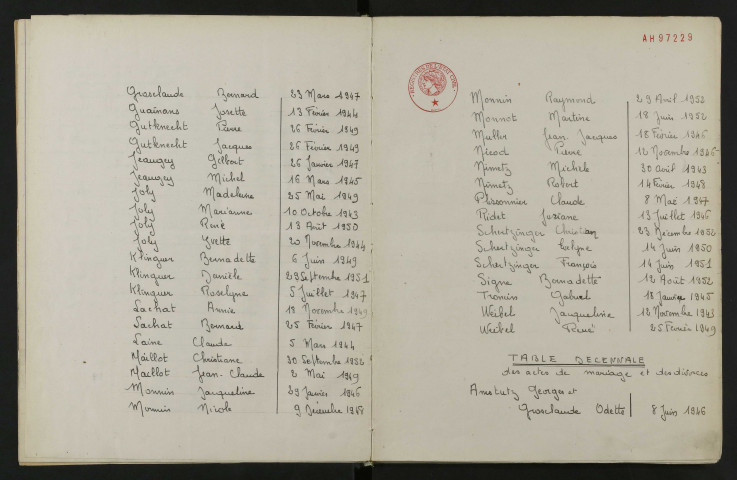 Grosclaude Bernard 23 Mars 1947
Guainans Josette 13 Février 1944
Gutknecht Pierre 26 Février 1949
Gutknecht Jacques 26 Février 1949
Jeaugey Gilbert 26 Janvier 1947
Jeaugey Michel 16 Mars 1945
Joly Madeleine 25 Mai 1949
Joly Marianne 10 Octobre 1943
Joly René 13 Août 1950
Joly Yvette 20 Novembre 1944
Klinguer Bernadette 6 Juin 1949
Klinguer Danièle 29 Septembre 1951
Klinguer Roselyne 5 Juillet 1947
Lachat Annie 18 Novembre 1949
Lachat Bernard 25 Février 1947
Laine Claude 5 Mars 1944
Maillot Christiane 30 Septembre 1952
Maillot Jean-Claude 2 Mai 1949
Monnin Jacqueline 29 Janvier 1946
Monnin Nicole 9 Décembre
AH97229
Monnin Raymond 29 Avril 1952
Monnot Martine 18 Juin 1952
Muller Jean Jacques 18 Février 1946
Nicod Pierre 12 Novembre 1946
Nimetz Michele 30 Août 1943
Nimetz Robert 14 Février 1948
Personnier Claude 8 Mai 1947
Ridet Josiane 13 Juillet 1946
Schertzinger Christian 23 Décembre 1952
Schertzinger 14 Juin 1950
Schertzinger François 14 Juin 1951
Signe Bernadette 12 Août 1952
Gabriel 18 Janvier 1945
Weibel Jacqueline 12 Novembre 1943
Weibel René 25 Février 1949
TABLE DECENNALE
des actes de mariage et des divorces
Amstutz Georges et
Grosclaude Odette 8 Juin 1946